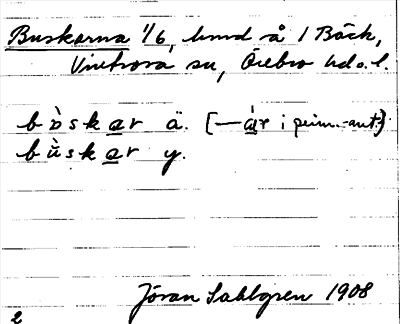 Buskarna 1/6, hmd å 1 Bäck,
Vintrosa sn, Örebro hd o. l.
bòskar ä. [—àr i prim.-ant.]
bùskar y.
Jöran Sahlgren 1908
2